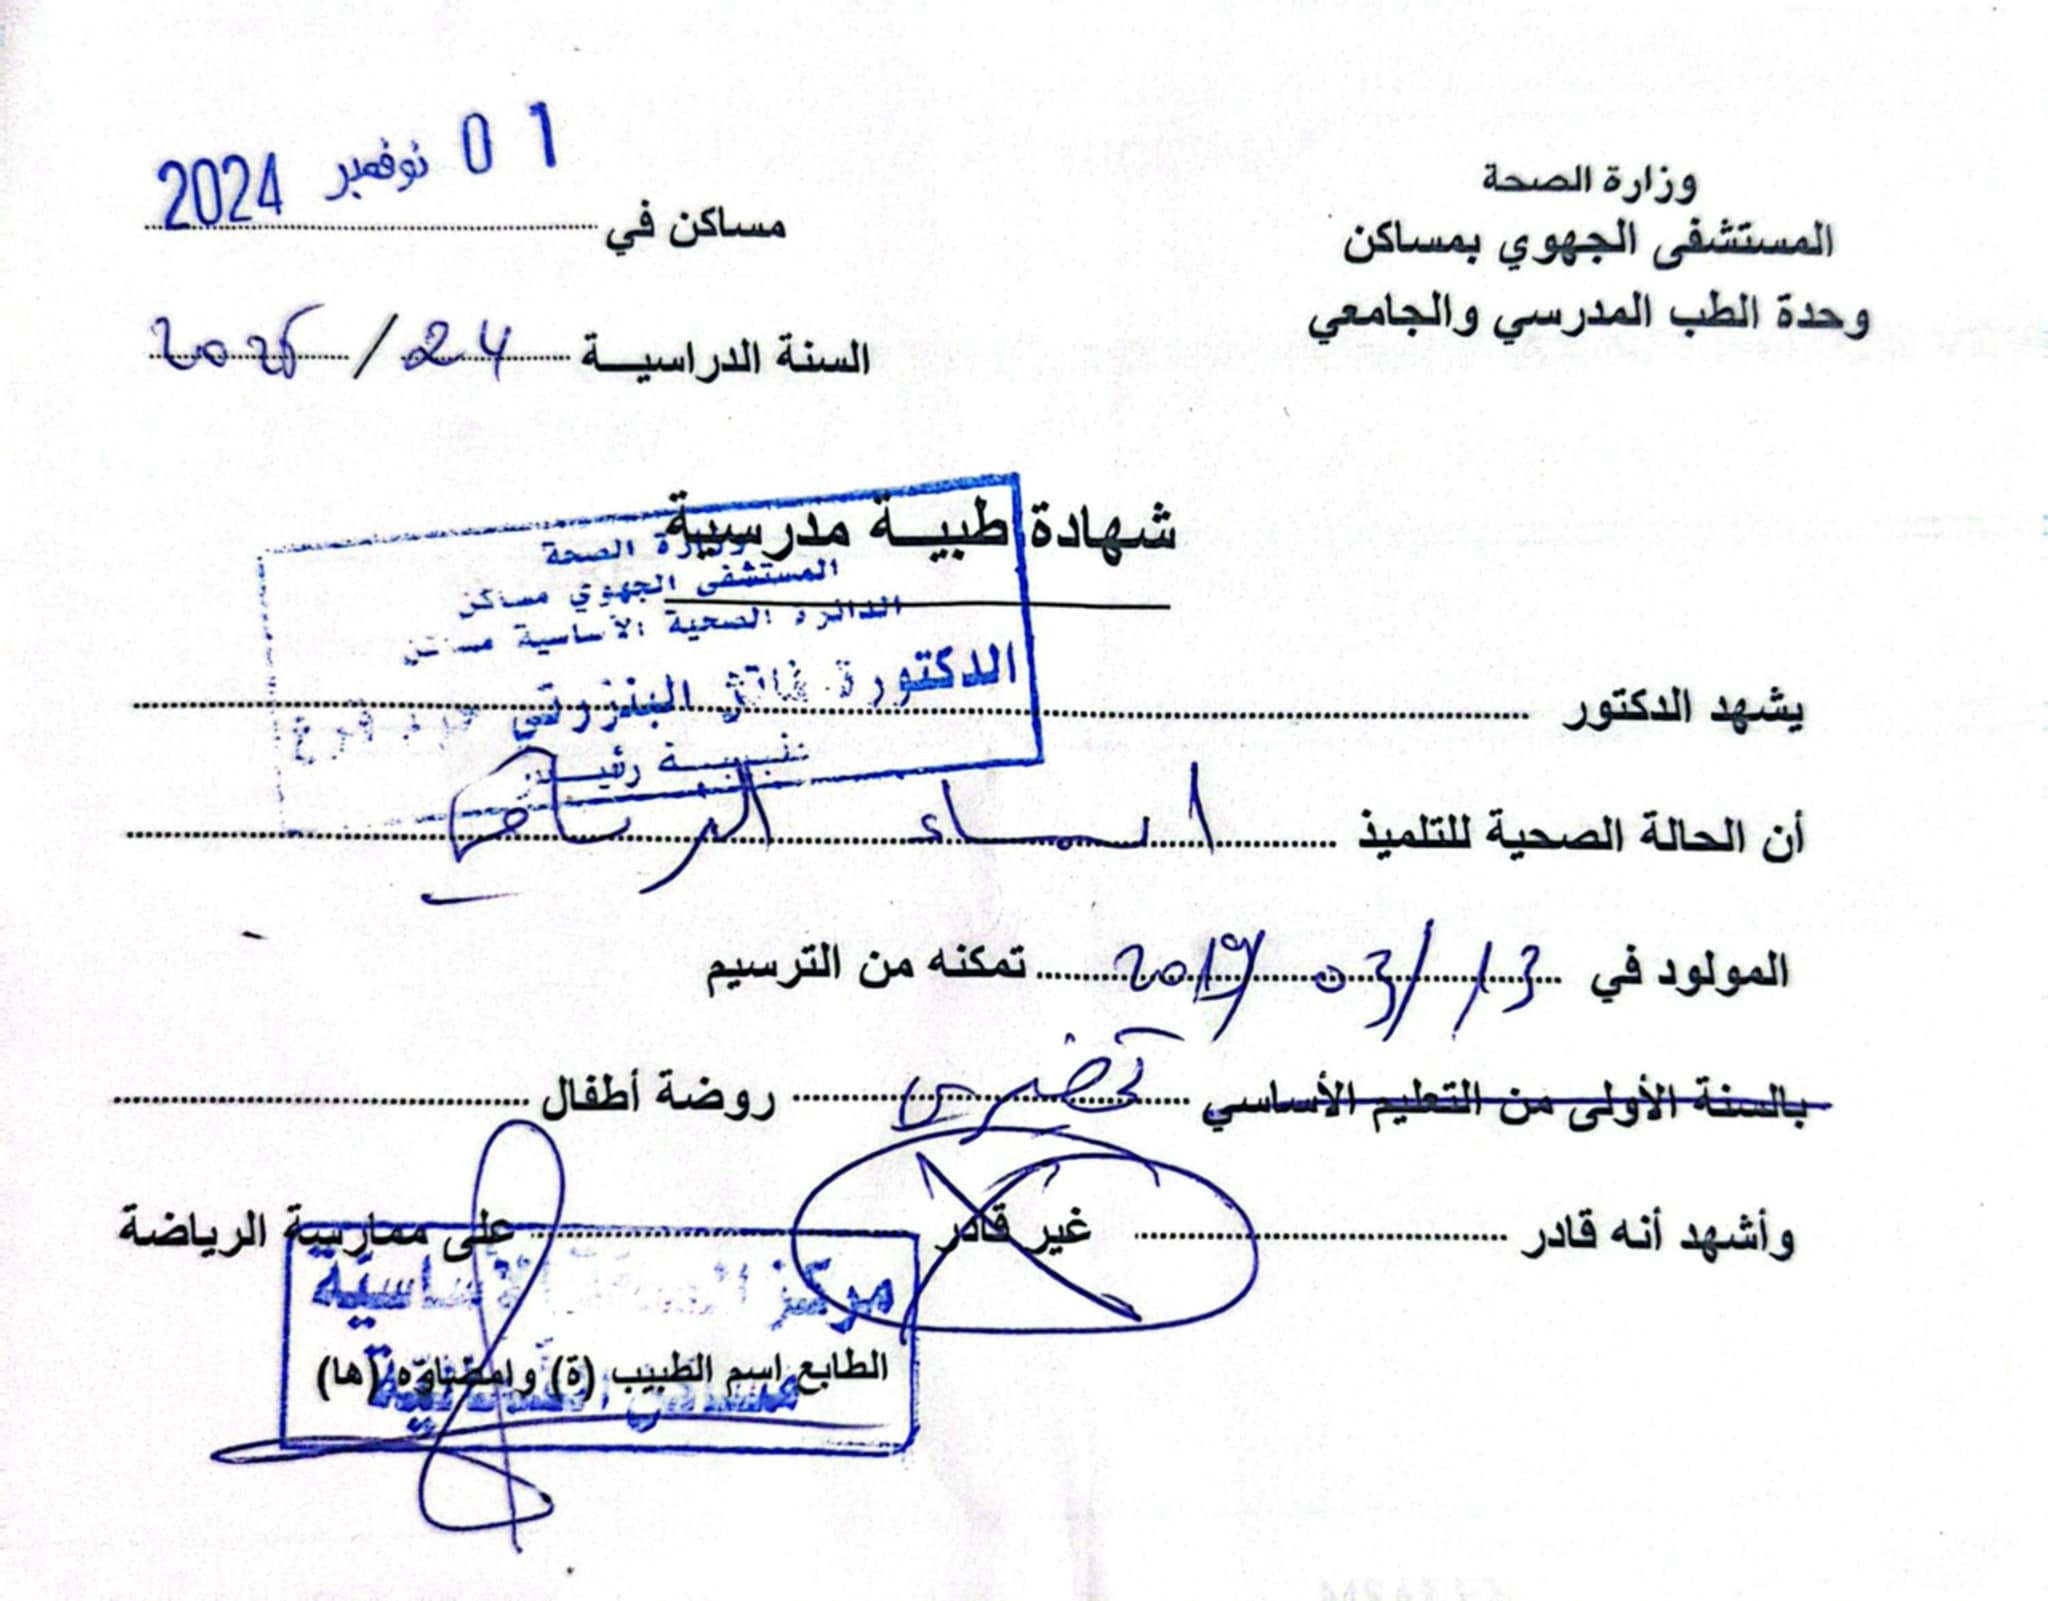 وزارة الصحة
المستشفى الجهوي بمساكن
وحدة الطب المدرسي والجامعي
مساكن في 01 نوفمبر 2024
السنة الدراسيـــة 24 / 2025
شهادة طبيـــة مدرسية
وزارة الصحة
المستشفى الجهوي مساكن
الدائرة الصحية الأساسية مساكن
الدكتورة فاتن البنزرتي
طبيبـــة رئيسة
يشهد الدكتور
أن الحالة الصحية للتلميذ
المولود في 13 / 03 / 2019 تمكنه من الترسيم
بالسنة الأولى من التعليم الأساسي تحضيري روضة أطفال
وأشهد أنه قادر غير قادر على ممارسة الرياضة
مركز الصحة الأساسية
الطابع اسم الطبيب (ة) وامضاؤه (ها)